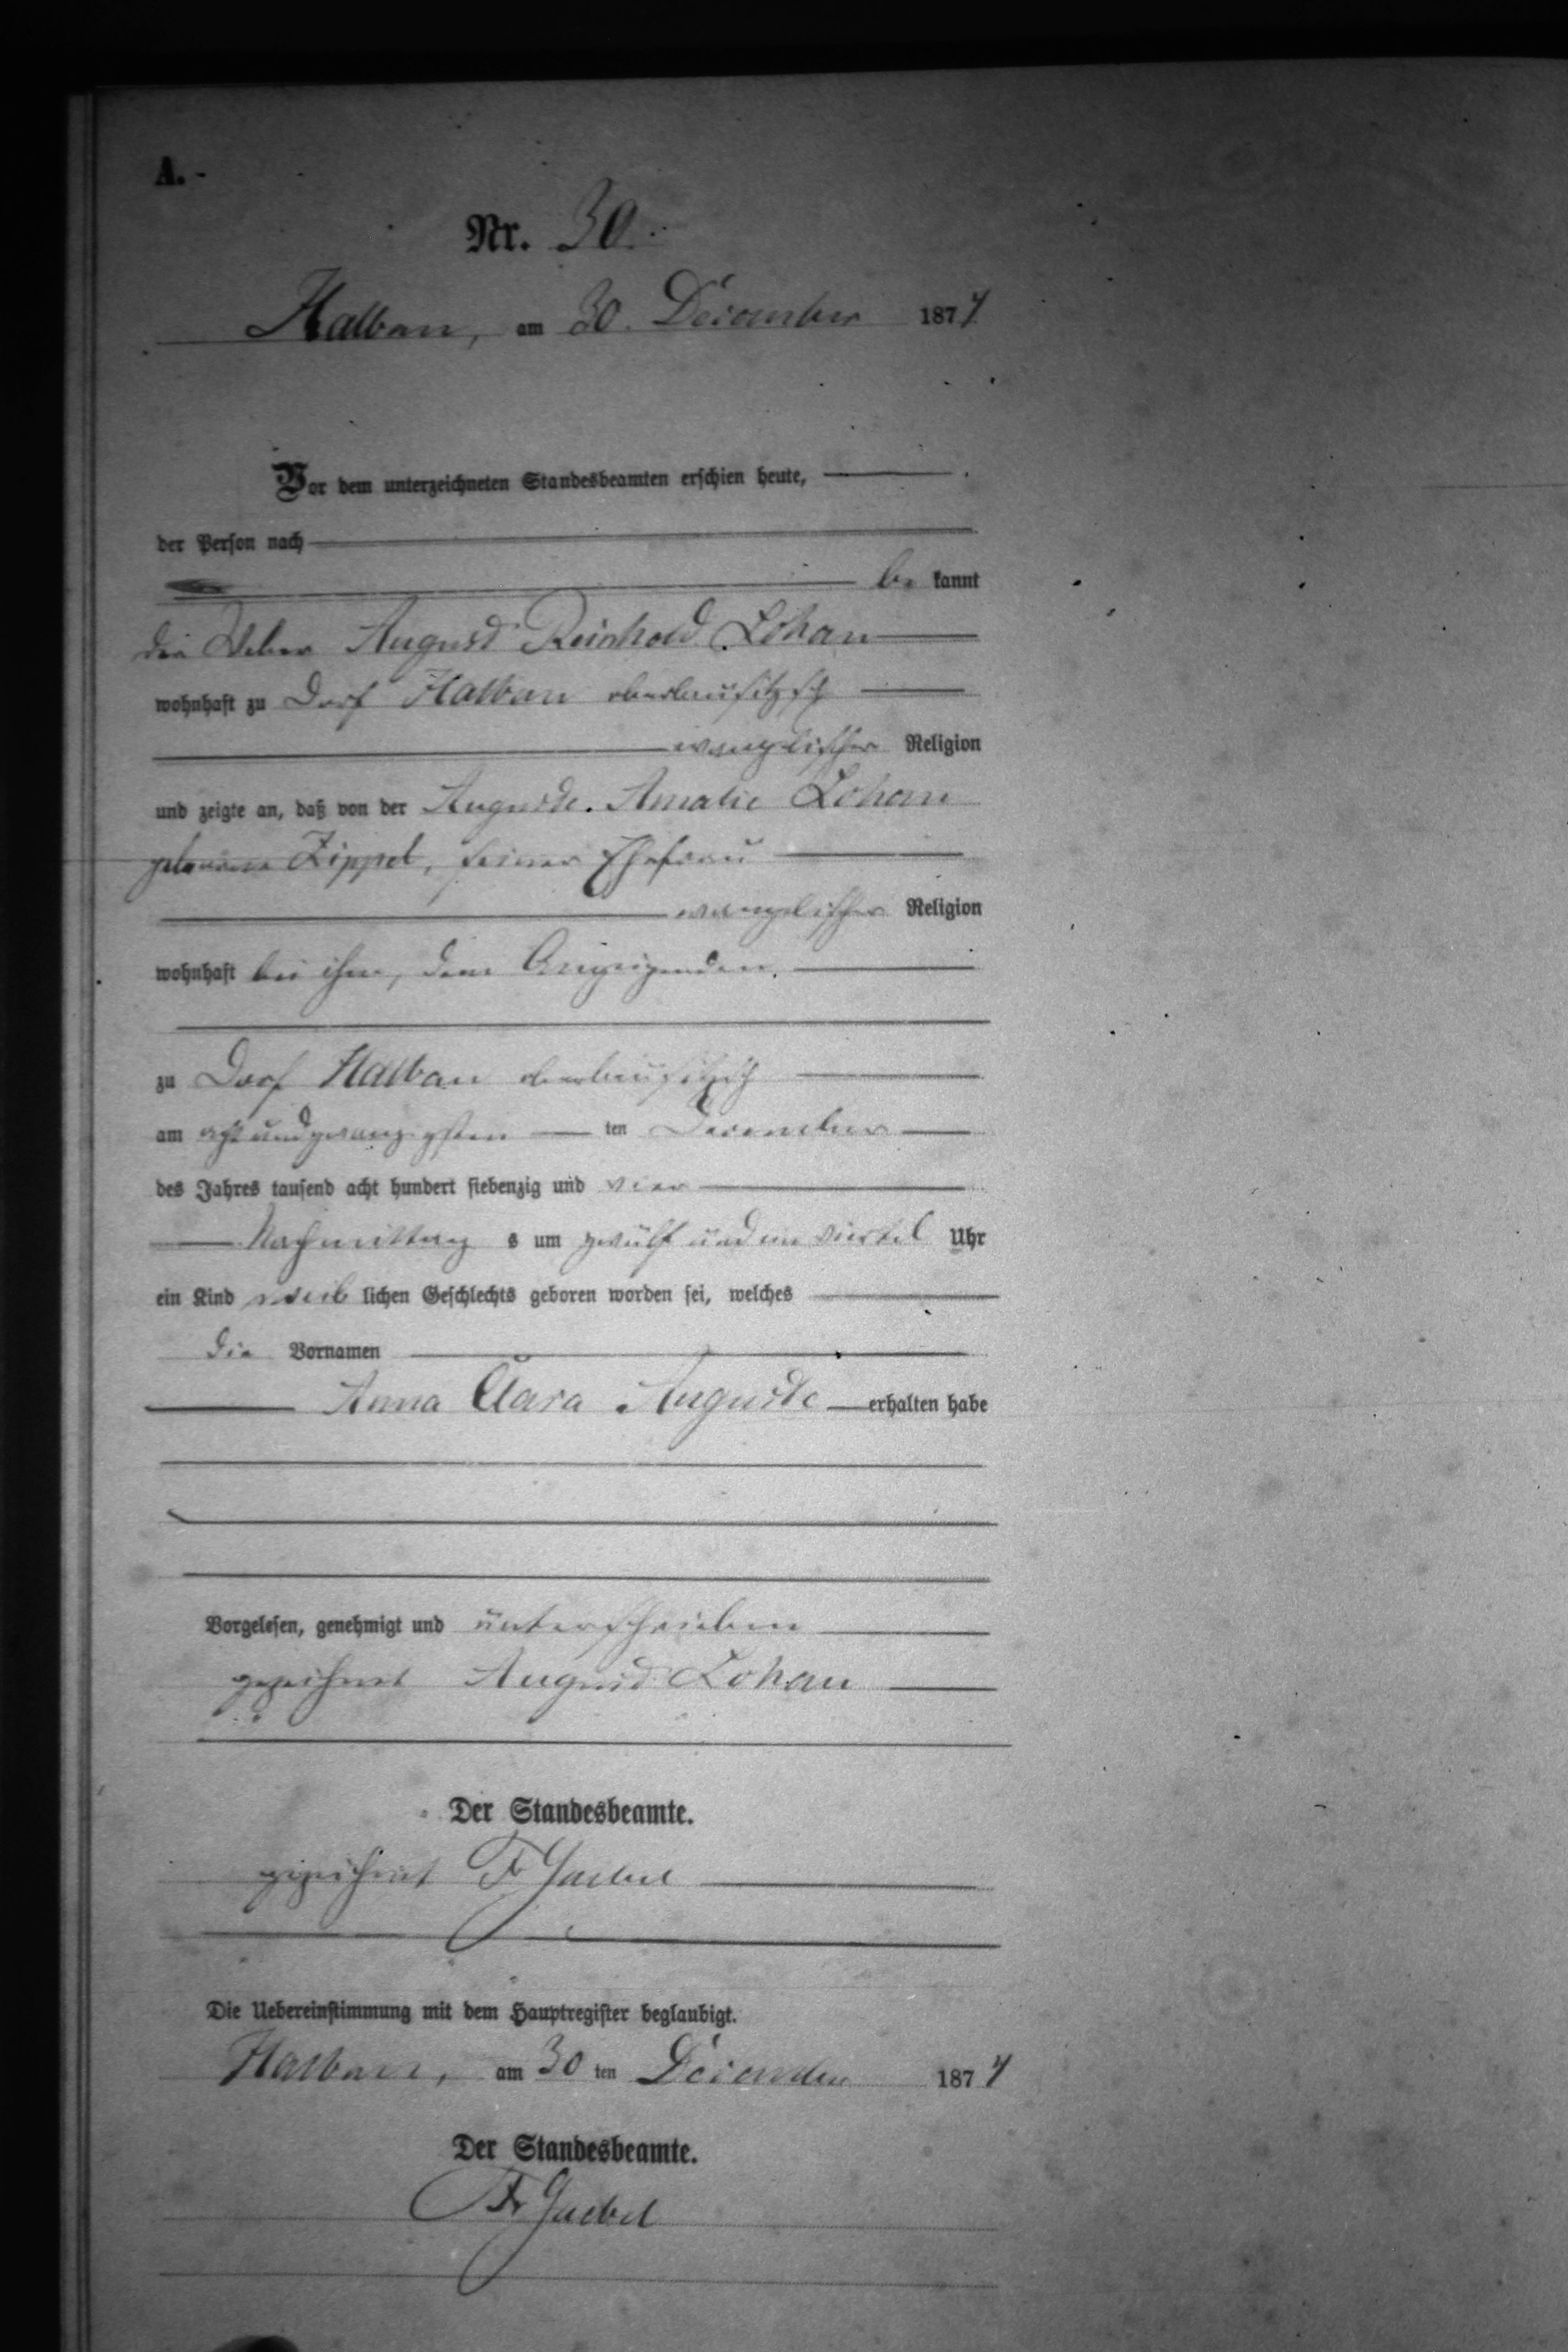 A.
Nr. 30.
Halbau, am 30. December 1874
Vor dem unterzeichneten Standesbeamten erschien heute,
der Person nach
be kannt
der Weber August Reinhold Lohan
wohnhaft zu Dorf Halbau oberlausitzisch
evangelischer Religion
und zeigte an, daß von der Auguste Amalie Lohan
geborene Zippel, seiner Ehefrau
evangelischer Religion
wohnhaft bei ihm, dem Anzeigenden,
zu Dorf Halbau oberlausitzisch
am acht und zwanzigsten ten December
des Jahres tausend acht hundert siebenzig und vier
Nachmittag s um zwölf und ein viertel Uhr
ein Kind weib lichen Geschlechts geboren worden sei, welches
die Vornamen
Anna Clara Auguste erhalten habe
Vorgelesen, genehmigt und unterschrieben
gezeichnet August Lohan
Der Standesbeamte.
gezeichnet Fr Jaekel
Die Uebereinstimmung mit dem Hauptregister beglaubigt.
Halbau, am 30 ten December 1874
Der Standesbeamte.
Fr Jaekel